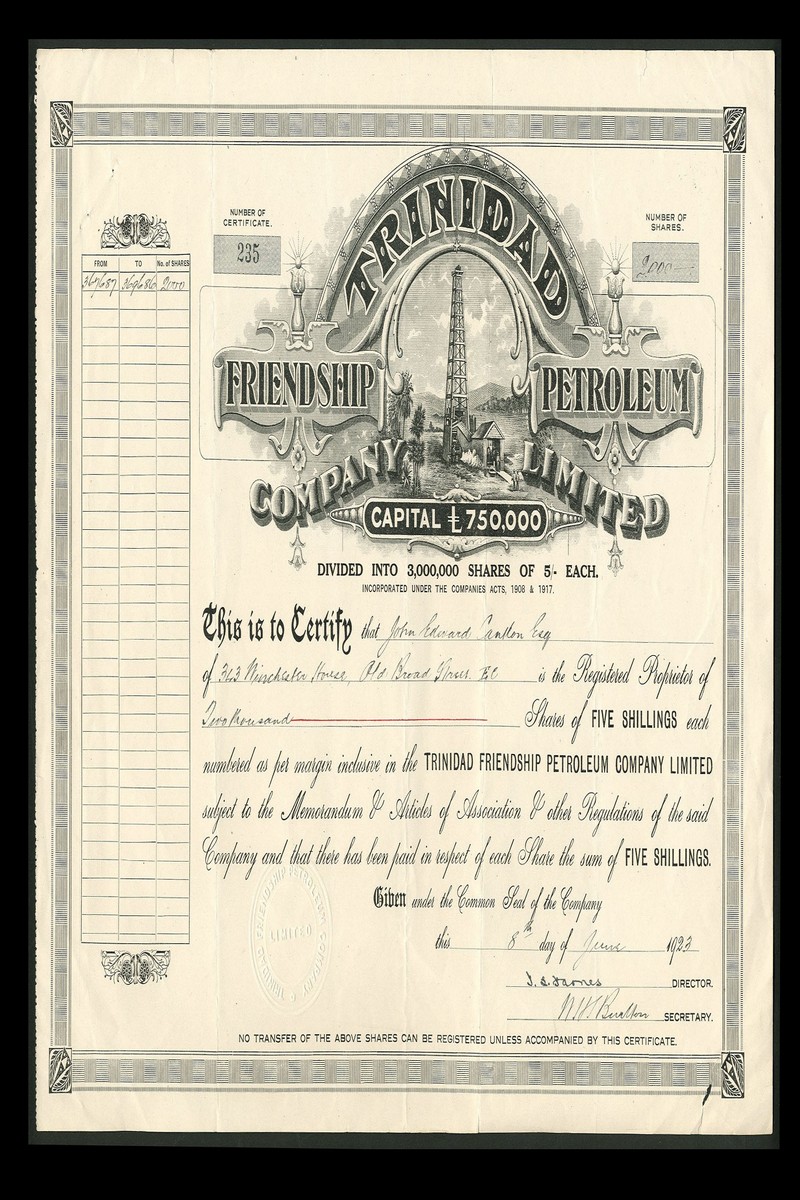 NUMBER OF
CERTIFICATE.
235
NUMBER OF
SHARES.
2000
FROM TO No. of SHARES
2000
TRINIDAD
FRIENDSHIP PETROLEUM
COMPANY LIMITED
CAPITAL £750,000
DIVIDED INTO 3,000,000 SHARES OF 5/- EACH.
INCORPORATED UNDER THE COMPANIES ACTS, 1908 & 1917.
This is to Certify that John Edward Esq
of 363 Winchester House, Old Broad Street. EC is the Registered Proprietor of
Two thousand Shares of FIVE SHILLINGS each
numbered as per margin inclusive in the TRINIDAD FRIENDSHIP PETROLEUM COMPANY LIMITED
subject to the Memorandum & Articles of Association & other Regulations of the said
Company and that there has been paid in respect of each Share the sum of FIVE SHILLINGS.
Given under the Common Seal of the Company
this 8th day of June 1923
DIRECTOR.
SECRETARY.
TRINIDAD FRIENDSHIP PETROLEUM COMPANY
LIMITED
NO TRANSFER OF THE ABOVE SHARES CAN BE REGISTERED UNLESS ACCOMPANIED BY THIS CERTIFICATE.